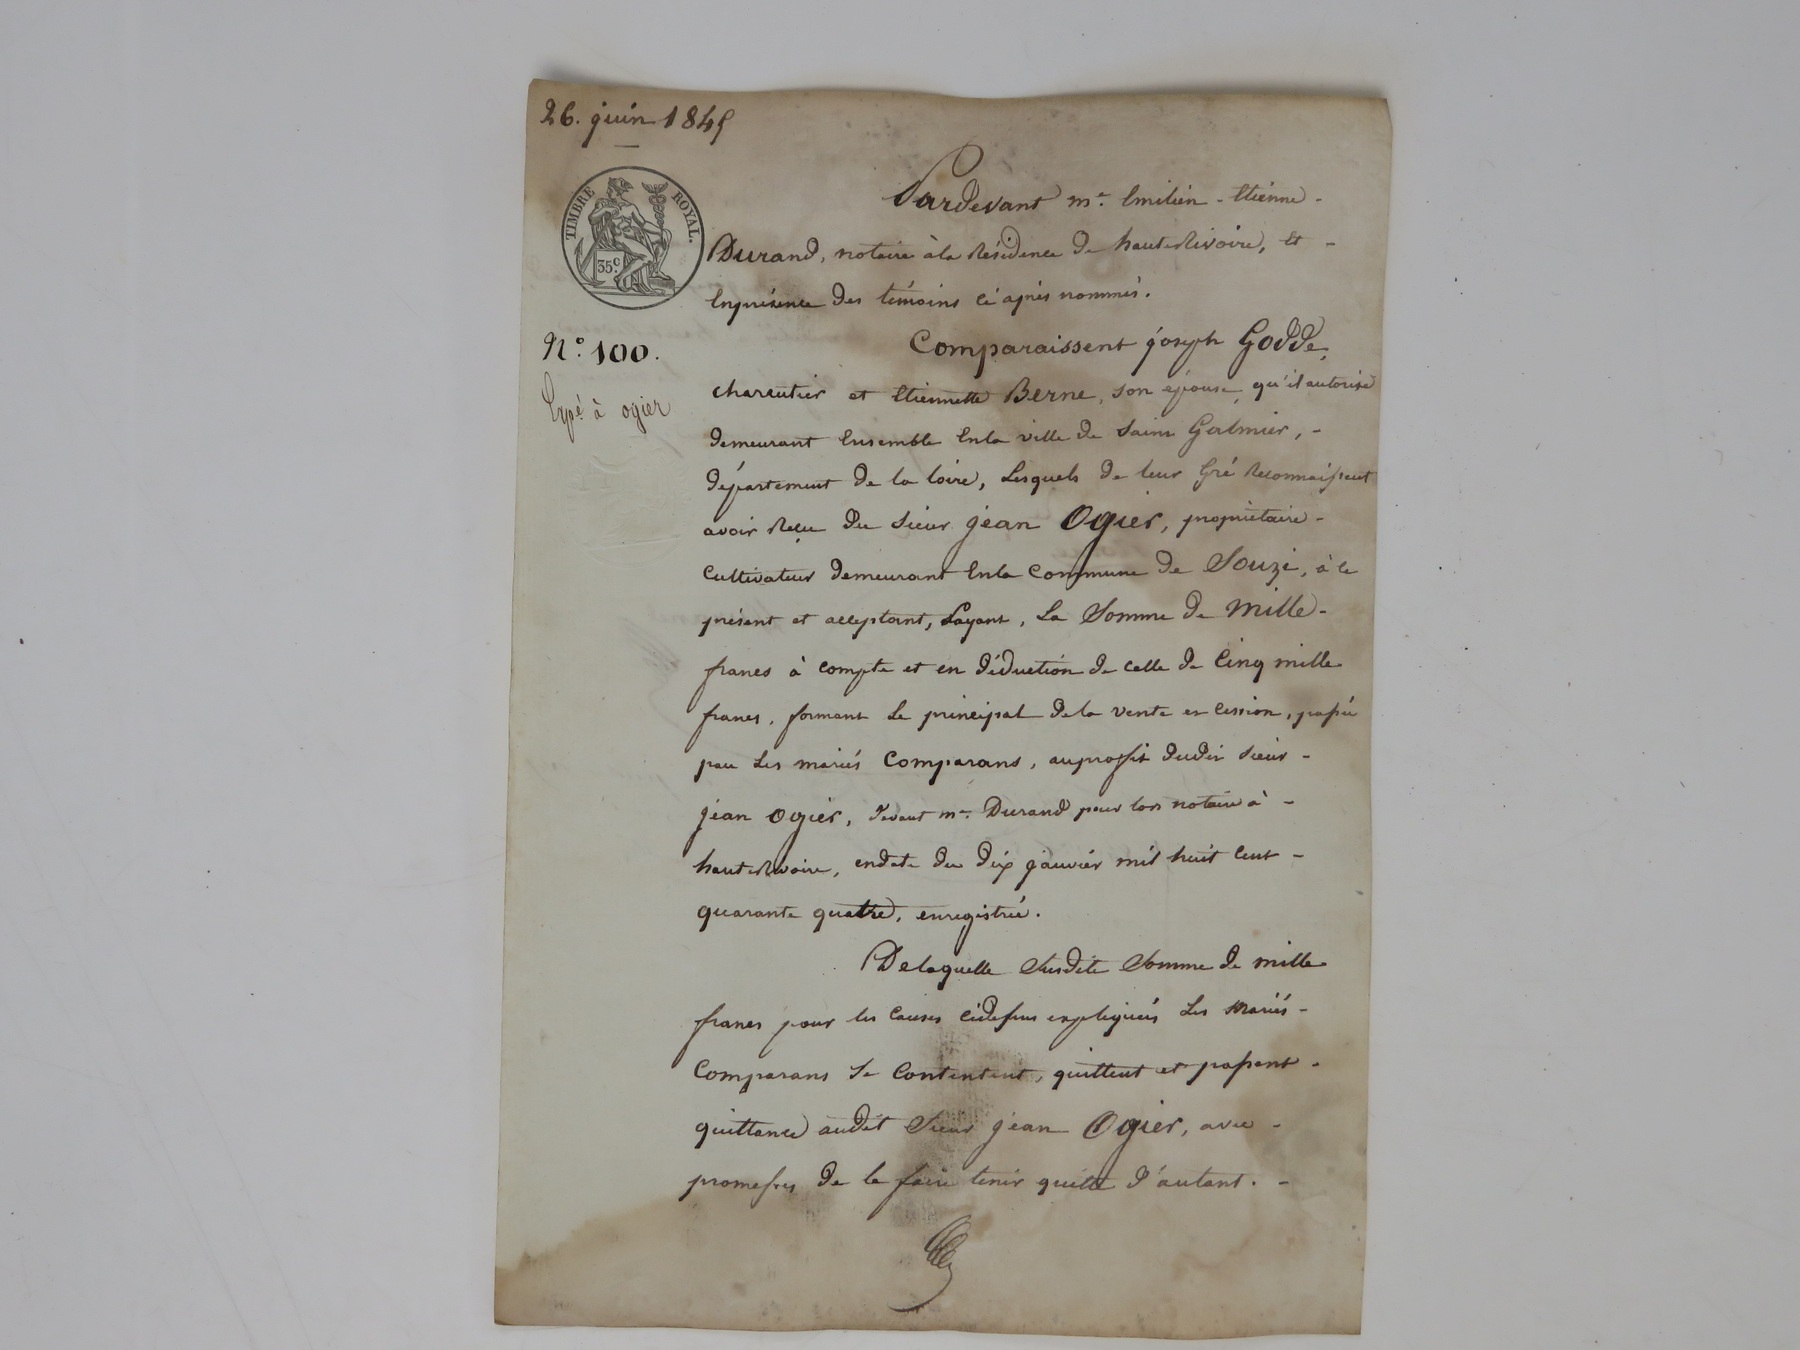 26. juin 1845
TIMBRE ROYAL.
35 c.
Pardevant me. Emilien - Etienne -
Durand, notaire à la Résidence de hauteRivoire, et -
Enprésence des témoins ci après nommés.
N° 100.
Comparaissent joseph Godde,
charentier et Etiennette Berne, son epouse, qu'il autorise
Expé. à ogier
demeurant Ensemble Enla ville de Saint Galmier, -
département de la loire, Lesquels de leur Gré Reconnaissent
avoir Reçu du Sieur jean Ogier, propriétaire -
Cultivateur demeurant Enla Commune de Souzi, à ce
présent et acceptant, Payant, La Somme de Mille -
francs à compte et en déduction de celle de Cinq mille
francs, formant Le principal dela vente et Cession, passée
par Les mariés Comparans, auproffit dudit Sieur -
jean Ogier, devant me. Durand pour lors notaire à -
hauteRivoire, endate du dix janvier mil huit Cent -
quarante quatre, enregistrée.
Delaquelle Susdite Somme de mille
francs pour les Causes Cidessus expliquées Les Mariés -
Comparans Se Contentent, quittent et passent -
quittance audit Sieur jean Ogier, avec -
promesses de le faire tenir quitte d'autant. -